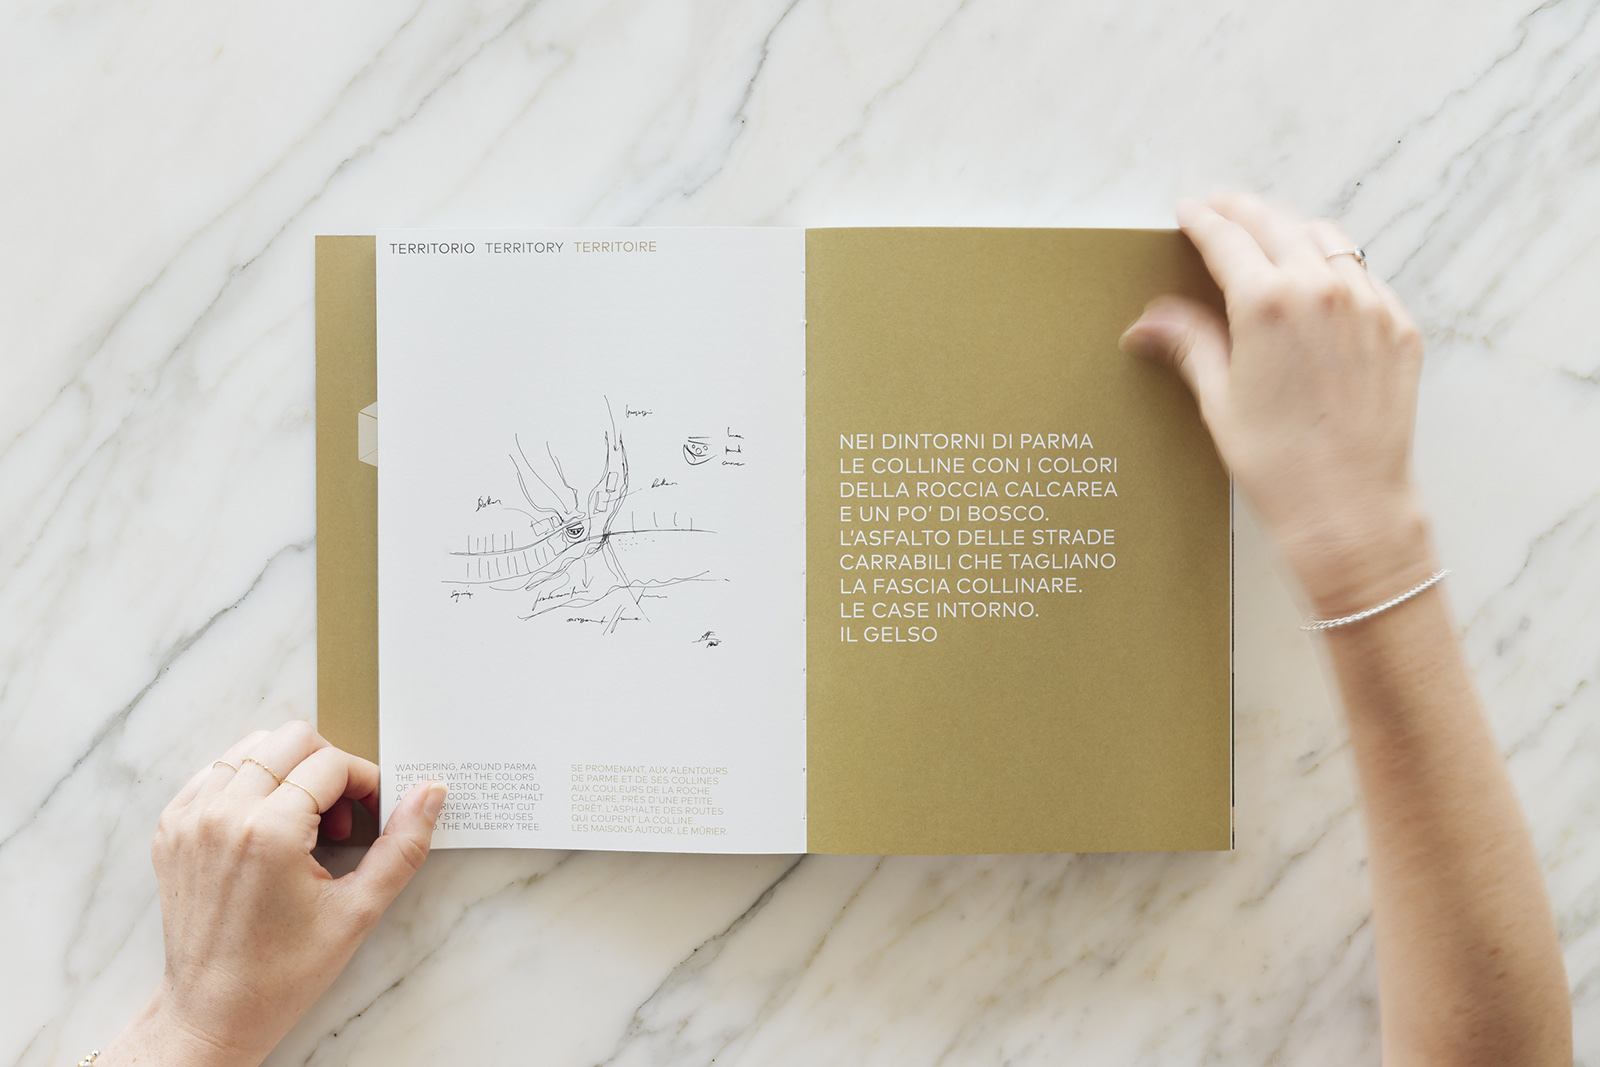 TERRITORIO TERRITORY TERRITOIRE
WANDERING, AROUND PARMA
THE HILLS WITH THE COLORS
OF ROCK AND
THE ASPHALT
THAT CUT
STRIP. THE HOUSES
THE MULBERRY TREE.
SE PROMENANT, AUX ALENTOURS
DE PARME ET DE SES COLLINES
AUX COULEURS DE LA ROCHE
CALCAIRE, PRÈS D'UNE PETITE
FORÊT. L'ASPHALTE DES ROUTES
QUI COUPENT LA COLLINE.
LES MAISONS AUTOUR. LE MÛRIER.
NEI DINTORNI DI PARMA
LE COLLINE CON I COLORI
DELLA ROCCIA CALCAREA
E UN PO' DI BOSCO.
L'ASFALTO DELLE STRADE
CARRABILI CHE TAGLIANO
LA FASCIA COLLINARE.
LE CASE INTORNO.
IL GELSO